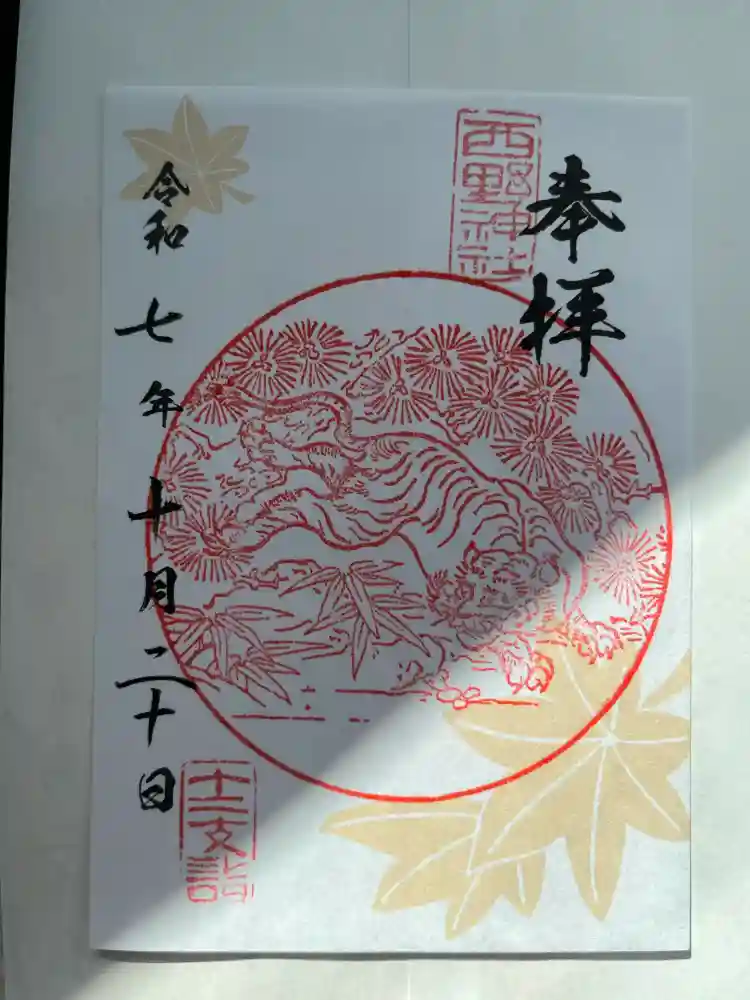 奉拝
西野神社
令和七年十月二十日
十二支詣